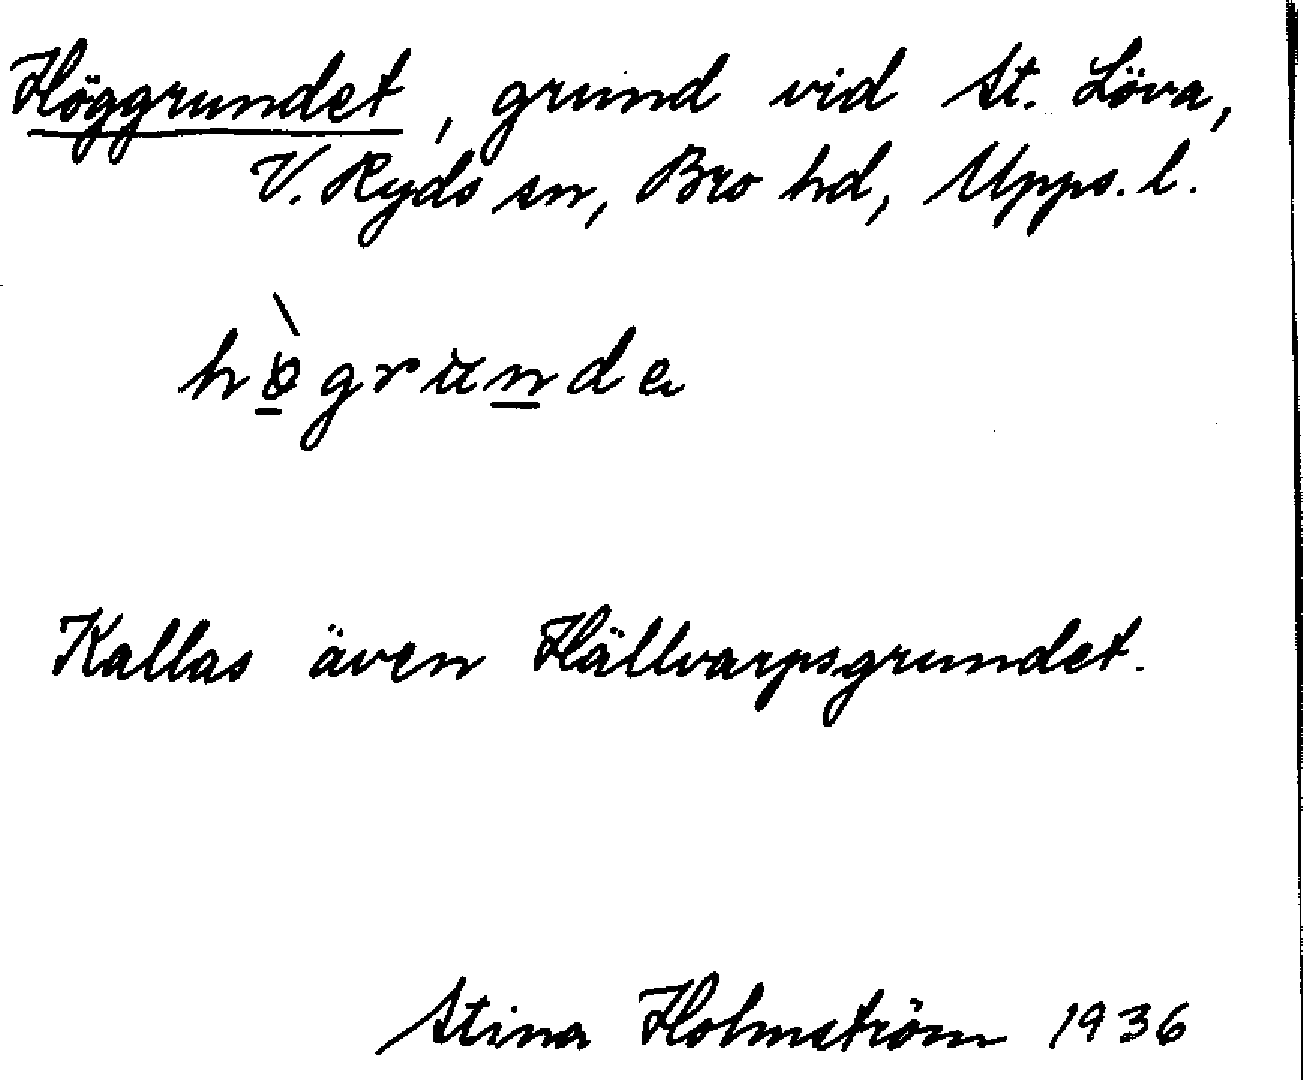 Höggrundet, grund vid St. Löva,
V. Ryds sn, Bro hd, Upps. l.
Kallas även Hällvarpsgrundet.
Stina Holmström 1936